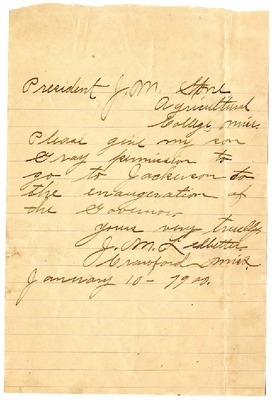 President J. M. Stone
Agricultural
College, miss.
Please give my son
Gray permission to
go to Jackerson to
the enaugeration of
the Governor.
yours very truelly
J. M. Ledbetter
Crawford miss.
January 10 - 1900.